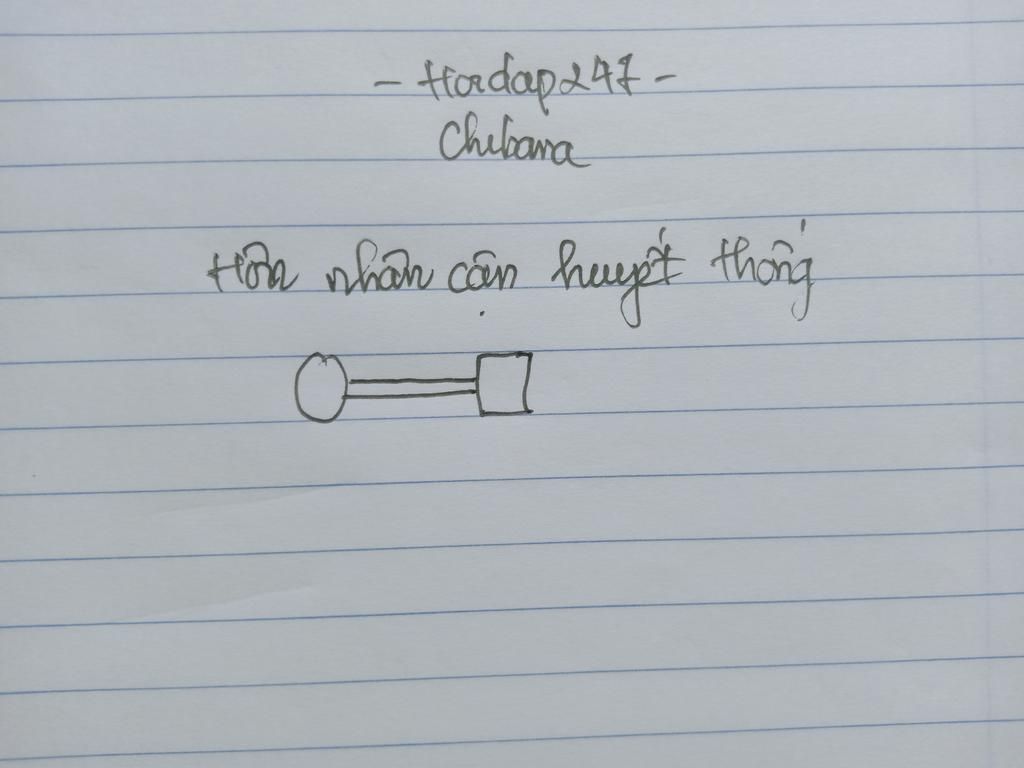 - Hoidap247 -
Chibana
Hôn nhân cận huyết thống